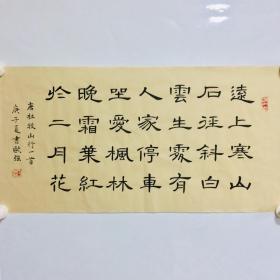 遠上寒山
石徑斜白
雲生處有
人家停車
坐愛楓林
晚霜葉紅
於二月花
唐杜牧山行一首
庚子夏書